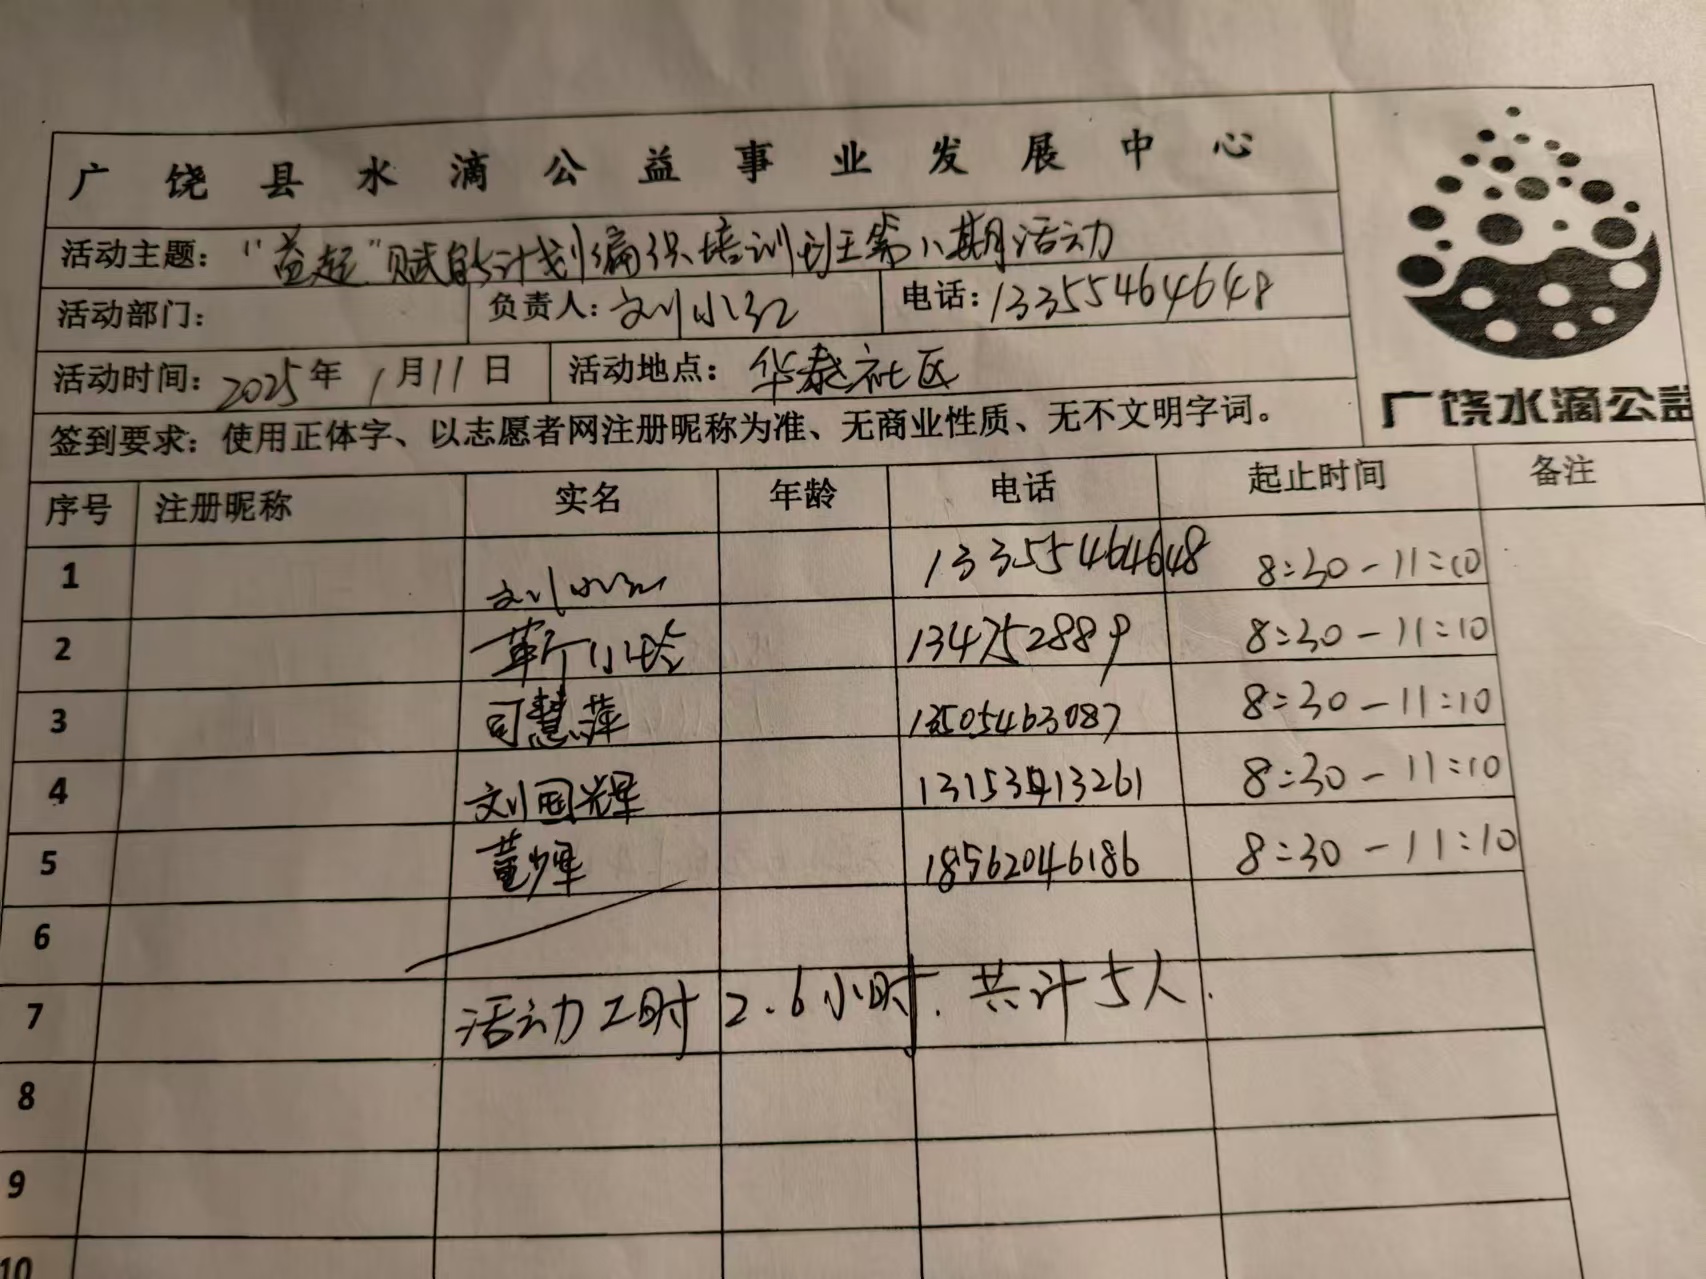 广饶县水滴公益事业发展中心
活动主题："益起"赋能计划编织培训班第八期活动
活动部门： 负责人：刘小红 电话：13355464648
活动时间：2025年1月11日 活动地点：华泰社区
签到要求：使用正体字、以志愿者网注册昵称为准、无商业性质、无不文明字词。
广饶水滴公益
序号 注册昵称 实名 年龄 电话 起止时间 备注
1 刘小红 13355464648 8:30-11:10
2 靳小玲 1347528889 8:30-11:10
3 司慧萍 13505463087 8:30-11:10
4 刘国辉 13153413261 8:30-11:10
5 董少军 18562046186 8:30-11:10
6
7 活动工时2.6小时.共计5人.
8
9
10